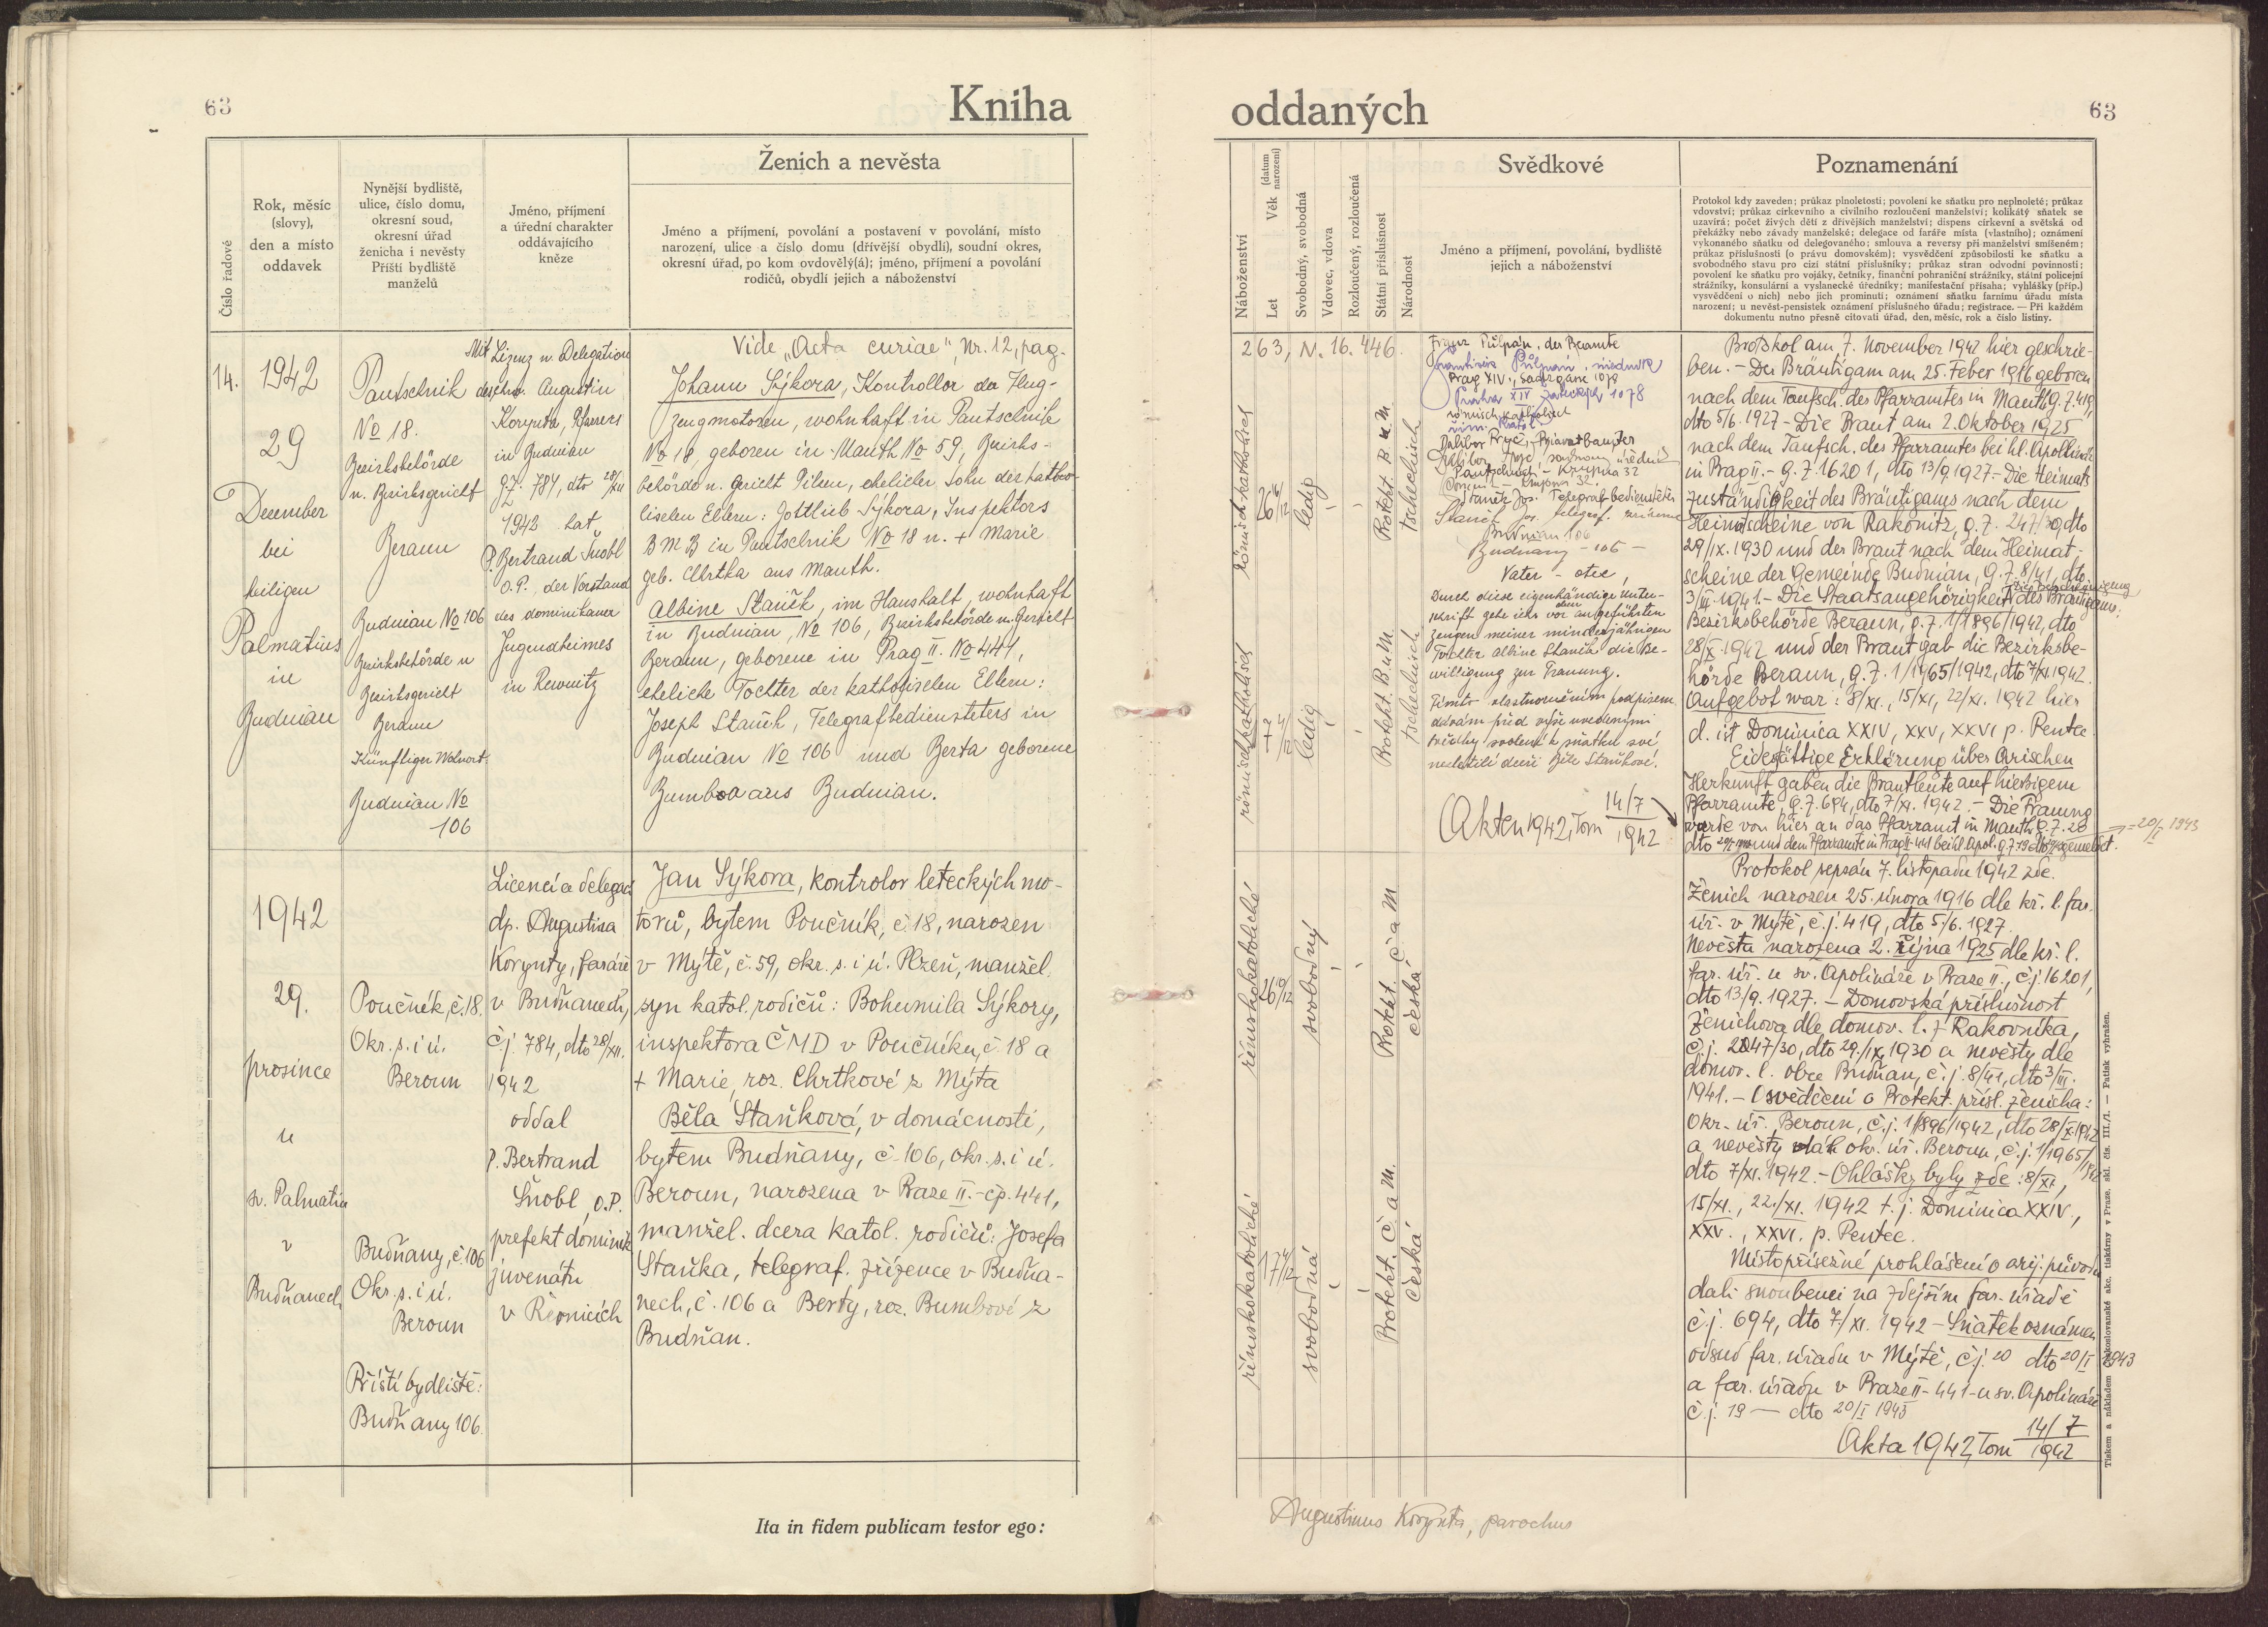 63
Kniha
Číslo řadové
Rok, měsíc
(slovy),
den a místo
oddavek
Nynější bydliště,
ulice, číslo domu,
okresní soud,
okresní úřad
ženicha i nevěsty
Příští bydliště
manželů
Jméno, příjmení
a úřední charakter
oddávajícího
kněze
Ženich a nevěsta
Jméno a příjmení, povolání a postavení v povolání, místo
narození, ulice a číslo domu (dřívější obydlí), soudní okres,
okresní úřad, po kom ovdověly(á); jméno, příjmení a povolání
rodičů, obydlí jejich a náboženství
14.
1942
29
December
bei
heiligen
Palmatius
in
Budnian
Pautschnik
No 18.
Bezirksbehörde
u. Bezirksgericht
Beraun
Budnian No 106
Bezirksbehörde u
Bezirksgericht
Beraun
Künftiger Wohnort:
Budnian No
106
Mit Lizenz u. Delegation
des hw. Augustin
Korynta, Pfarrers
in Budnian
g.Z. 784, dto 28/XII
1942 hat
P. Bertrand Šnobl
O.P., der Vorstand
des dominikaner
Jugendheimes
in Rewnitz
Vide „Acta curiae“, Nr. 12, pag.
Johann Sýkora, Kontrollor der Flug-
zeugmotoren, wohnhaft in Pautschnik
No 18, geboren in Mauth No 59, Bezirks-
behörde u. Gericht Pilsen, ehelicher Sohn der katho-
lischen Eltern: Gottlieb Sýkora, Inspektors
B M B in Pautschnik No 18 u. + Marie
geb. Chrtka aus Mauth.
Albine Staněk, im Haushalt, wohnhaft
in Budnian, No 106, Bezirksbehörde u. Gericht
Beraun, geborene in Prag II. No 441,
eheliche Tochter der katholischen Eltern:
Joseph Staněk, Telegrafbediensteters in
Budnian No 106 und Berta geborene
Bumba aus Budnian.
1942
29.
prosince
u
sv. Palmatia
v
Budňanech
Poučník, č. 18.
Okr. s. i ú.
Beroun
Budňany, č. 106
Okr. s. i ú.
Beroun
Příští bydliště:
Budňany 106.
Licencí a delegací
dp. Augustina
Korynty, faráře
v Budňanech,
č.j. 784, dto 28/XII.
1942
oddal
P. Bertrand
Šnobl, O.P.
prefekt dominik
juvenátu
v Řevnicích
Jan Sýkora, kontrolor leteckých mo-
torů, bytem Poučník, č. 18, narozen
v Mýtě, č. 59, okr. s. i ú. Plzeň, manžel.
syn katol. rodičů: Bohumila Sýkory,
inspektora ČMD v Poučníku, č. 18 a
+ Marie, roz. Chrtkové z Mýta
Běla Staňková, v domácnosti,
bytem Budňany, č. 106, okr. s. i ú.
Beroun, narozena v Praze II. - čp. 441,
manžel. dcera katol. rodičů: Josefa
Staňka, telegraf. zřízence v Budňa-
nech, č. 106 a Berty, roz. Bumbové z
Budňan.
Ita in fidem publicam testor ego:
oddaných
63
Náboženství
Let
Věk (datum narození)
Svobodný, svobodná
Vdovec, vdova
Rozloučený, rozloučená
Státní příslušnost
Národnost
Svědkové
Jméno a příjmení, povolání, bydliště
jejich a náboženství
Poznamenání
Protokol kdy zaveden; průkaz plnoletosti; povolení ke sňatku pro neplnoleté; průkaz
vdovství; průkaz církevního a civilního rozloučení manželství; kolikátý sňatek se
uzavírá; počet živých dětí z dřívějších manželství; dispens církevní a světská od
překážky nebo závady manželské; delegace od faráře místa (vlastního); oznámení
vykonaného sňatku od delegovaného; smlouva a reversy při manželství smíšeném;
průkaz příslušnosti (o právu domovském); vysvědčení způsobilosti ke sňatku a
svobodného stavu pro cizí státní příslušníky; průkaz stran odvodní povinnosti;
povolení ke sňatku pro vojáky, četníky, finanční pohraniční strážníky, státní policejní
strážníky, konsulární a vyslanecké úředníky; manifestační přísaha; vyhlášky (příp.)
vysvědčení o nich) nebo jich prominutí; oznámení sňatku farnímu úřadu místa
narození; u nevěst-pensistek oznámení příslušného úřadu; registrace. — Při každém
dokumentu nutno přesně citovati úřad, den, měsíc, rok a číslo listiny.
263, N. 16.446.
römisch-katholisch
ledig
Protekt. B. u. M.
tschechisch
römisch-katholisch
ledig
Protekt. B. u M.
tschechisch
římskokatolické
svobodný
Protekt. Č a M
česká
římskokatolické
svobodná
Protekt. Č. a M.
česká
Franz Půlpán, der Beamte
František Půlpán, úředník
Prag XIV.,
Praha XIV
1078
römisch katholisch
řím. katol.
Dalibor
Pautschnik - Krupna 32
Staněk Jos. Telegraf-bediensteter
Staněk Jos. telegraf. zřízenec
Budnian 106
Budňany - 106 -
Vater - otec,
Durch diese eigenhändige Unter-
schrift gebe ich vor den angeführten
Zeugen meiner minderjährigen
Tochter Albine Staněk die Be-
willigung zur Trauung.
Tímto vlastnoručním podpisem
dávám před výše uvedenými
svědky svolení k sňatku své
nezletilé dceři Běle Staňkové.
Akten 1942, Tom 14/7 1942
Protokol am 7. November 1942 hier geschrie-
ben. - Der Bräutigam am 25. Feber 1916 geboren
nach dem Taufsch. des Pfarramtes in Mauth g.Z. 419,
dto 5/6. 1927 - Die Braut am 2. Oktober 1925
nach dem Taufsch. des Pfarramtes bei hl. Apollinar
in Prag II. - g.Z. 16201, dto 13/9. 1927. - Die Heimats
zuständigkeit des Bräutigams nach dem
Heimatscheine von Rakonitz, g.Z. 247/30, dto
29/IX. 1930 und der Braut nach dem Heimat-
scheine der Gemeinde Budnian, g.Z. 8/41, dto
3/III. 1941. - Die Staatsangehörigkeit des Bräutigams:
Bezirksbehörde Beraun, g.Z. 1/1896/1942, dto
28/X. 1942 und der Braut gab die Bezirksbe-
hörde Beraun, g.Z. 1/1965/1942, dto 7/XI. 1942.
Aufgebot war: 8/XI., 15/XI, 22/XI. 1942 hier
d. ist Dominica XXIV, XXV, XXVI p. Pentec
Eidesstättige Erklärung über Arischen
Herkunft gaben die Brautleute auf hiesigem
Pfarramte, g.Z. 694, dto 7/XI. 1942. - Die Trauung
wurde von hier an das Pfarramt in Mauth g.Z. 20 - 20/I 1943
und dem Pfarramte in Prag II-441 bei hl. Apol. g.Z. 19 gemeldet.
Protokol sepsán 7. listopadu 1942 zde.
Ženich narozen 25. února 1916 dle kř. l. far.
úř. v Mýtě, č.j. 419, dto 5/6. 1927.
Nevěsta narozena 2. října 1925 dle kř. l.
far. úř. u sv. Apolináře v Praze II., č.j. 16201,
dto 13/9. 1927. - Domovská příslušnost
ženichova dle domov. l. z Rakovníka,
č.j. 2047/30, dto 29./IX. 1930 a nevěsty dle
domov. l. obce Budňan, č.j. 8/41, dto 3/III.
1941. - Osvědčení o Protekt. přísl. ženicha:
Okr. úř. Beroun, č.j. 1/1896/1942, dto 28/X. 1942
a nevěsty okr. úř. Beroun, č.j. 1/1965/1942
dto 7/XI. 1942. - Ohlášky byly zde: 8/XI.,
15/XI., 22./XI. 1942 t. j. Dominica XXIV,
XXV., XXVI. p. Pentec.
Místopřísežné prohlášení o arij. původu
dali snoubenci na zdejším far. úřadě
č.j. 694, dto 7/XI. 1942 - Sňatek oznámen
odsud far. úřadu v Mýtě, č.j. 20 dto 20/I 1943
a far. úřadu v Praze II-441-u sv. Apolináře
č.j. 19 — dto 20/I 1943
Akta 1942, Tom 14/7 1942
Augustinus Korynta, parochus
Tiskem a nákladem Českoslovanské akc. tiskárny v Praze. skl. čís. III./1. — Patisk vyhražen.